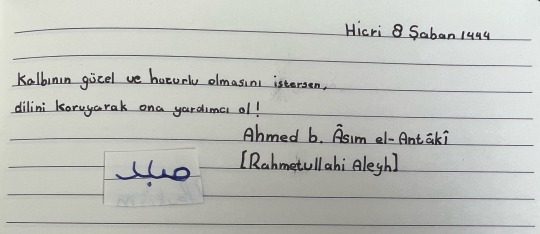 Hicri 8 Şaban 1444
Kalbinin güzel ve huzurlu olmasını istersen,
dilini koruyarak ona yardımcı ol!
Ahmed b. Âsım el-Antâkî
[Rahmetullahi Aleyh]